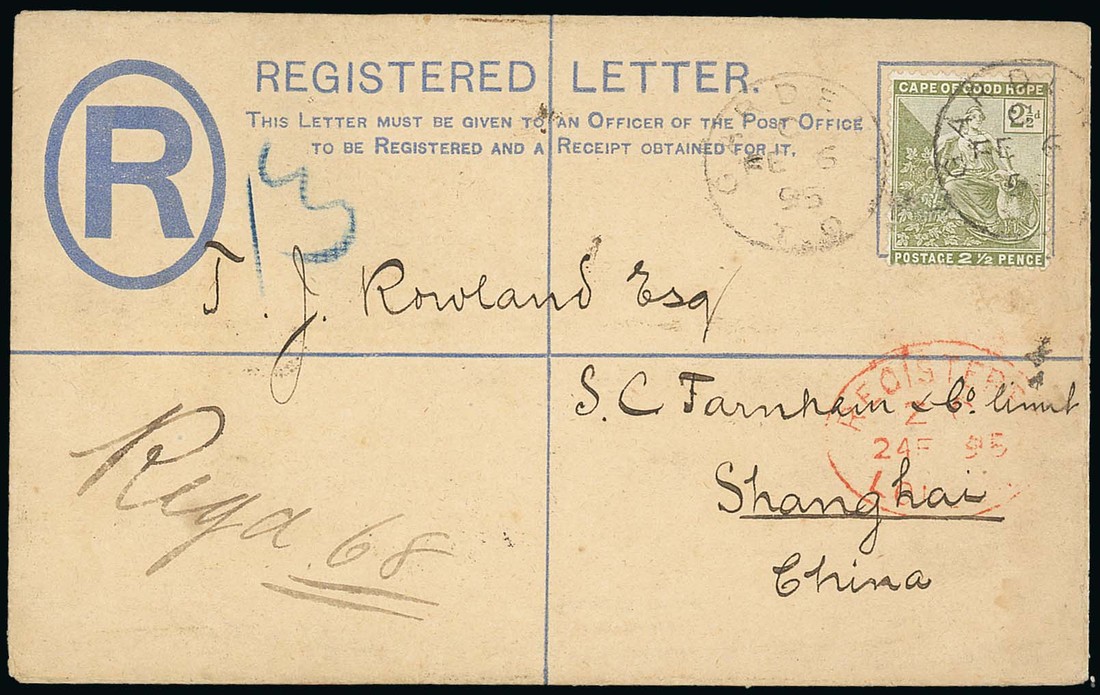 R
REGISTERED LETTER.
THIS LETTER MUST BE GIVEN TO AN OFFICER OF THE POST OFFICE
TO BE REGISTERED AND A RECEIPT OBTAINED FOR IT.
CAPE OF GOOD HOPE
2½d
POSTAGE 2½ PENCE
FE 5
95
13
T. J. Rowland Esq
S. C. Farnham & Co. limit
REGISTERE
24 F 95
Shanghai
China
Regd 68